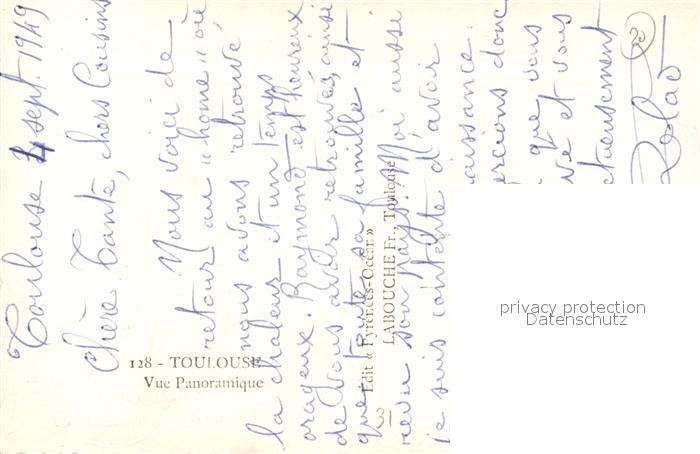 Toulouse 4 sept. 1949
Chère Tante, chers Cousins
Nous voici de
retour au "home" où
nous avons retrouvé
la chaleur et un temps
orageux. Raymond est heureux
de vous avoir retrouvés, ainsi
que toute sa famille et
revu son pays. Moi aussi
je suis contente d'avoir
aissance
ercions donc
que vous
ve et vous
ctueusement
128 - TOULOUSE
Vue Panoramique
Edit « Pyrénées-Océan »
LABOUCHE Fr., Toulouse
31
privacy protection
Datenschutz